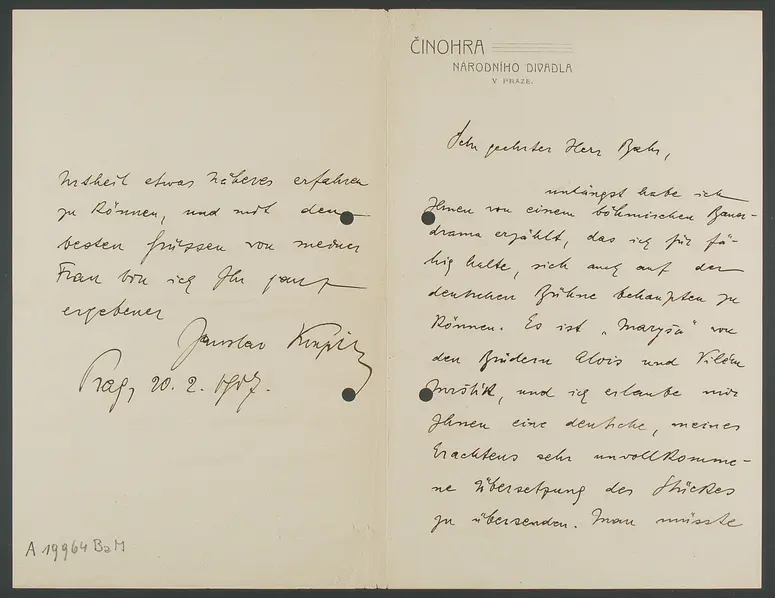 ČINOHRA
NÁRODNÍHO DIVADLA
V PRAZE.
Sehr geehrter Herr Bahr,
unlängst habe ich
Ihnen von einem böhmischen Bauern-
drama erzählt, das ich für fä-
hig halte, sich auch auf der
deutschen Bühne behaupten zu
können. Es ist „Maryša" von
den Brüdern Alois und Vilém
Mrštík, und ich erlaube mir
Ihnen eine deutsche, meines
Erachtens sehr unvollkomme-
ne Übersetzung des Stückes
zu übersenden. Man müsste
Urtheil etwas Näheres erfahren
zu können, und mit den
besten Grüssen von meiner
Frau bin ich Ihr ganz
ergebener
Jaroslav Kvapil
Prag, 20. 2. 1907.
A 19964 BaM